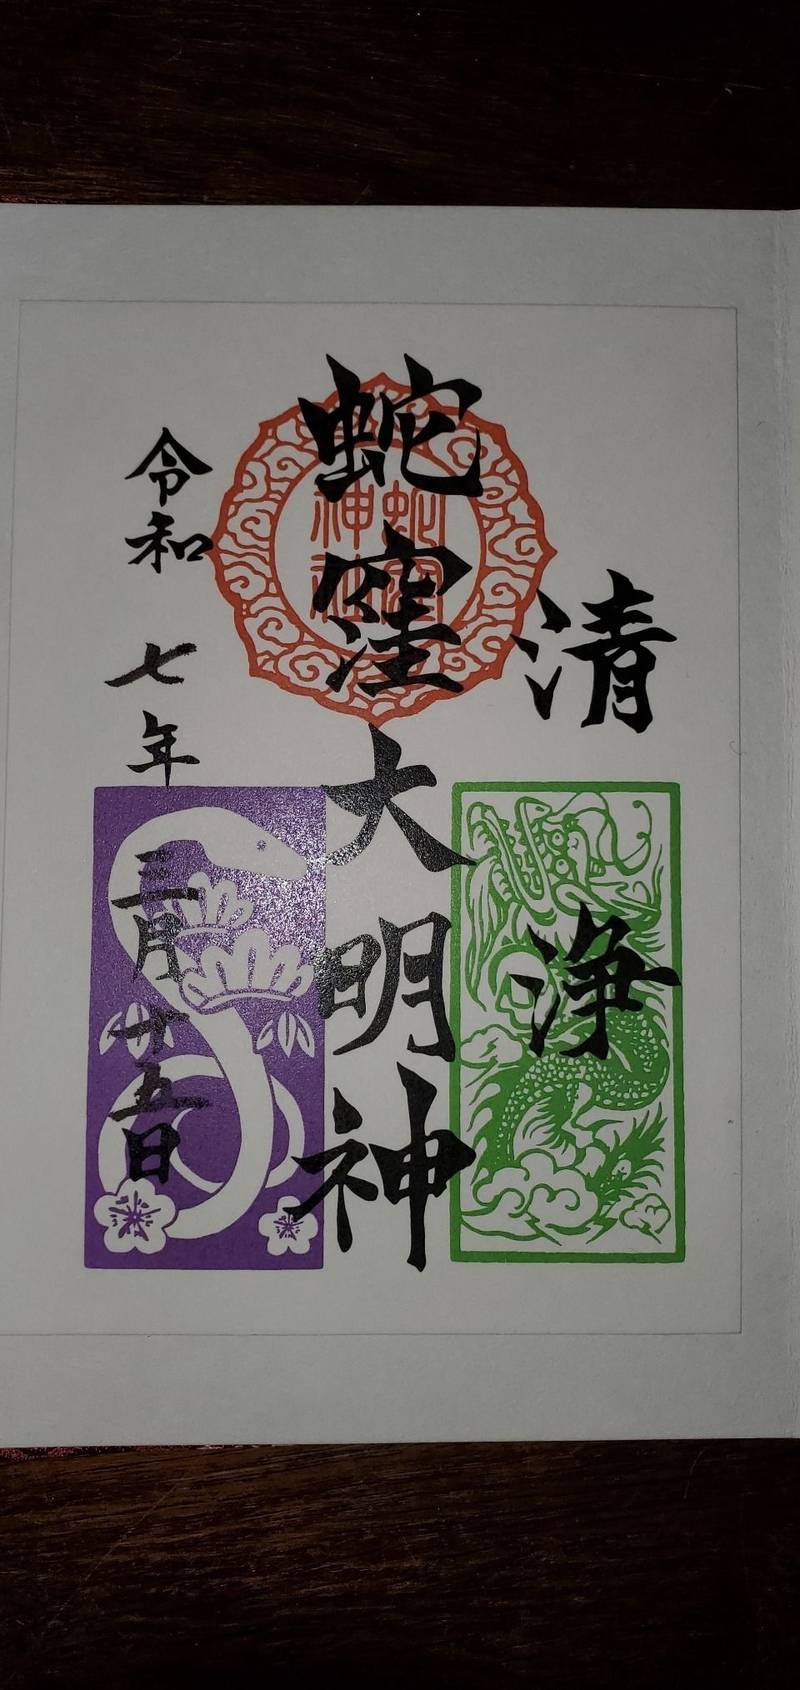 清浄
蛇窪大明神
蛇窪
神社
令和七年三月廿五日